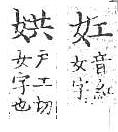 妅
音紅
女字
娂
户工切
女字也